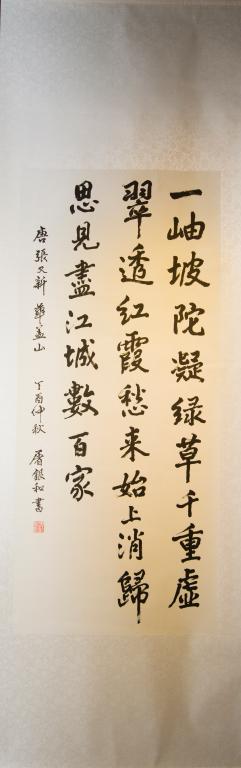 一岫坡陀凝绿草千重虚
翠透红霞愁来始上消歸
思見盡江城數百家
唐張又新華盖山 丁酉仲秋 屠銀和書